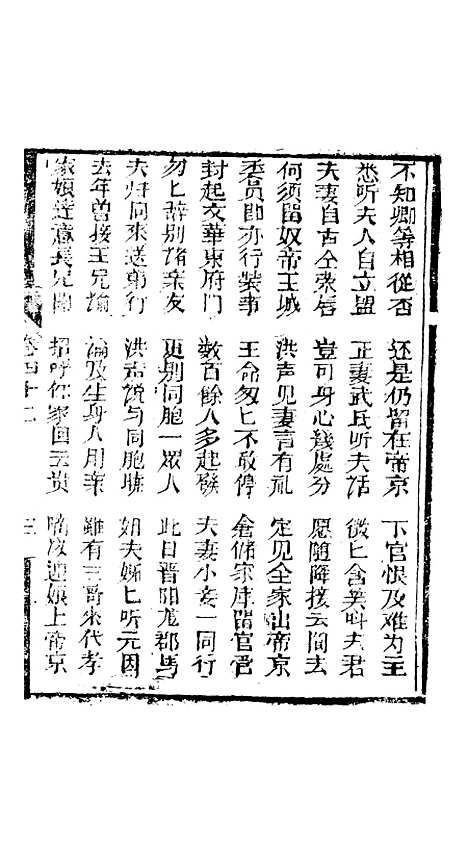 不知卿等相從否 还是仍畄在帝京 下官恨及难为主
悉听夫人自立盟 正妻武氏听夫活 微匕含笑叫夫君
夫妻自古仝荣辱 豈可身心幾處分 愿随降接云间去
何須畄奴帝王城 洪声见妻言有礼 定见全家出帝京
委員即亦行装事 王命匆匕不敢停 倉儲家庫畄官管
封起文華東府门 数百餘人多起髮 夫妻小妾一同行
勿匕辞别诸亲友 更别同胞一眾人 此日晋阳龙郡馬
夫归同来送弟行 洪声说与同胞姊 姐夫姊匕听元因
去年曾接王兄諭 論及生身人用亲 雖有三哥来代孝
家娘逹意長兄開 招呼你家回云贵 迎娘上帝京
卷四十二 三